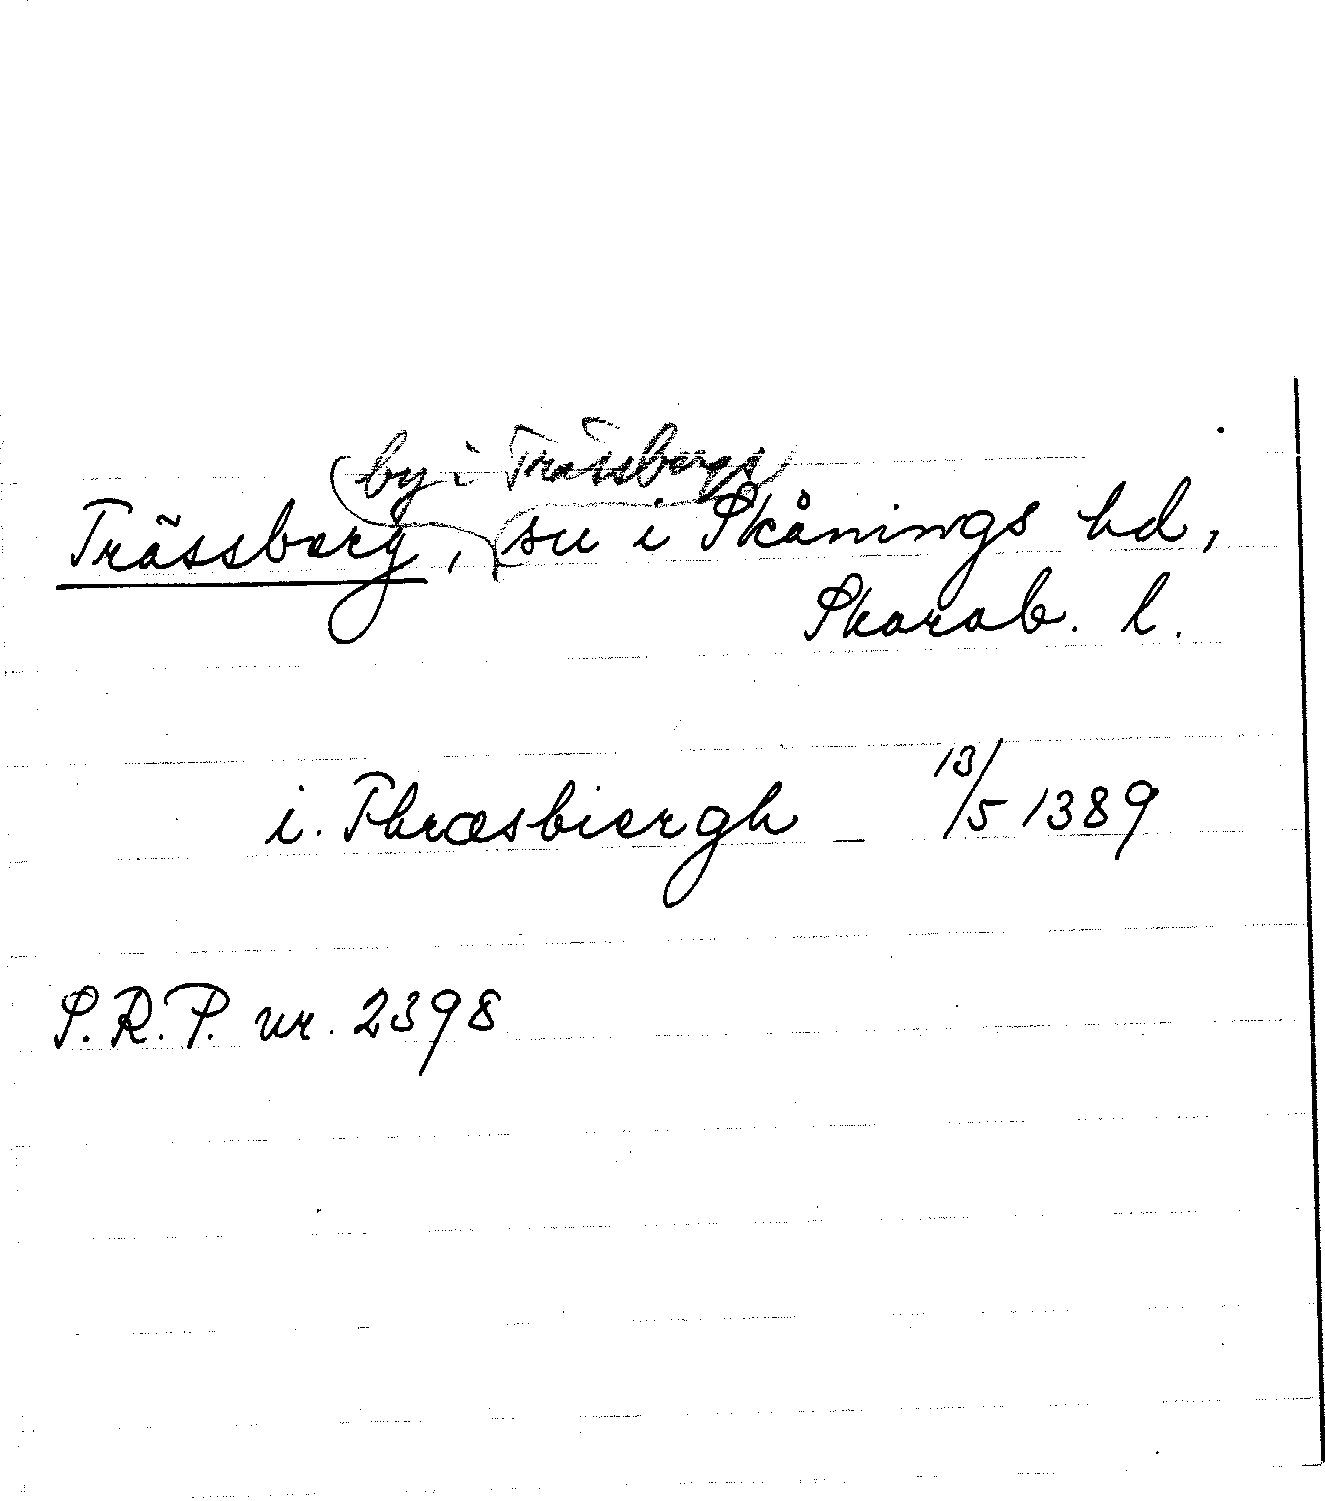 by i Trässbergs
Trässberg, sn i Skånings hd,
Skarab. l.
i. Thræsbiergh _ 13/5 1389
S.R.P. nr. 2398